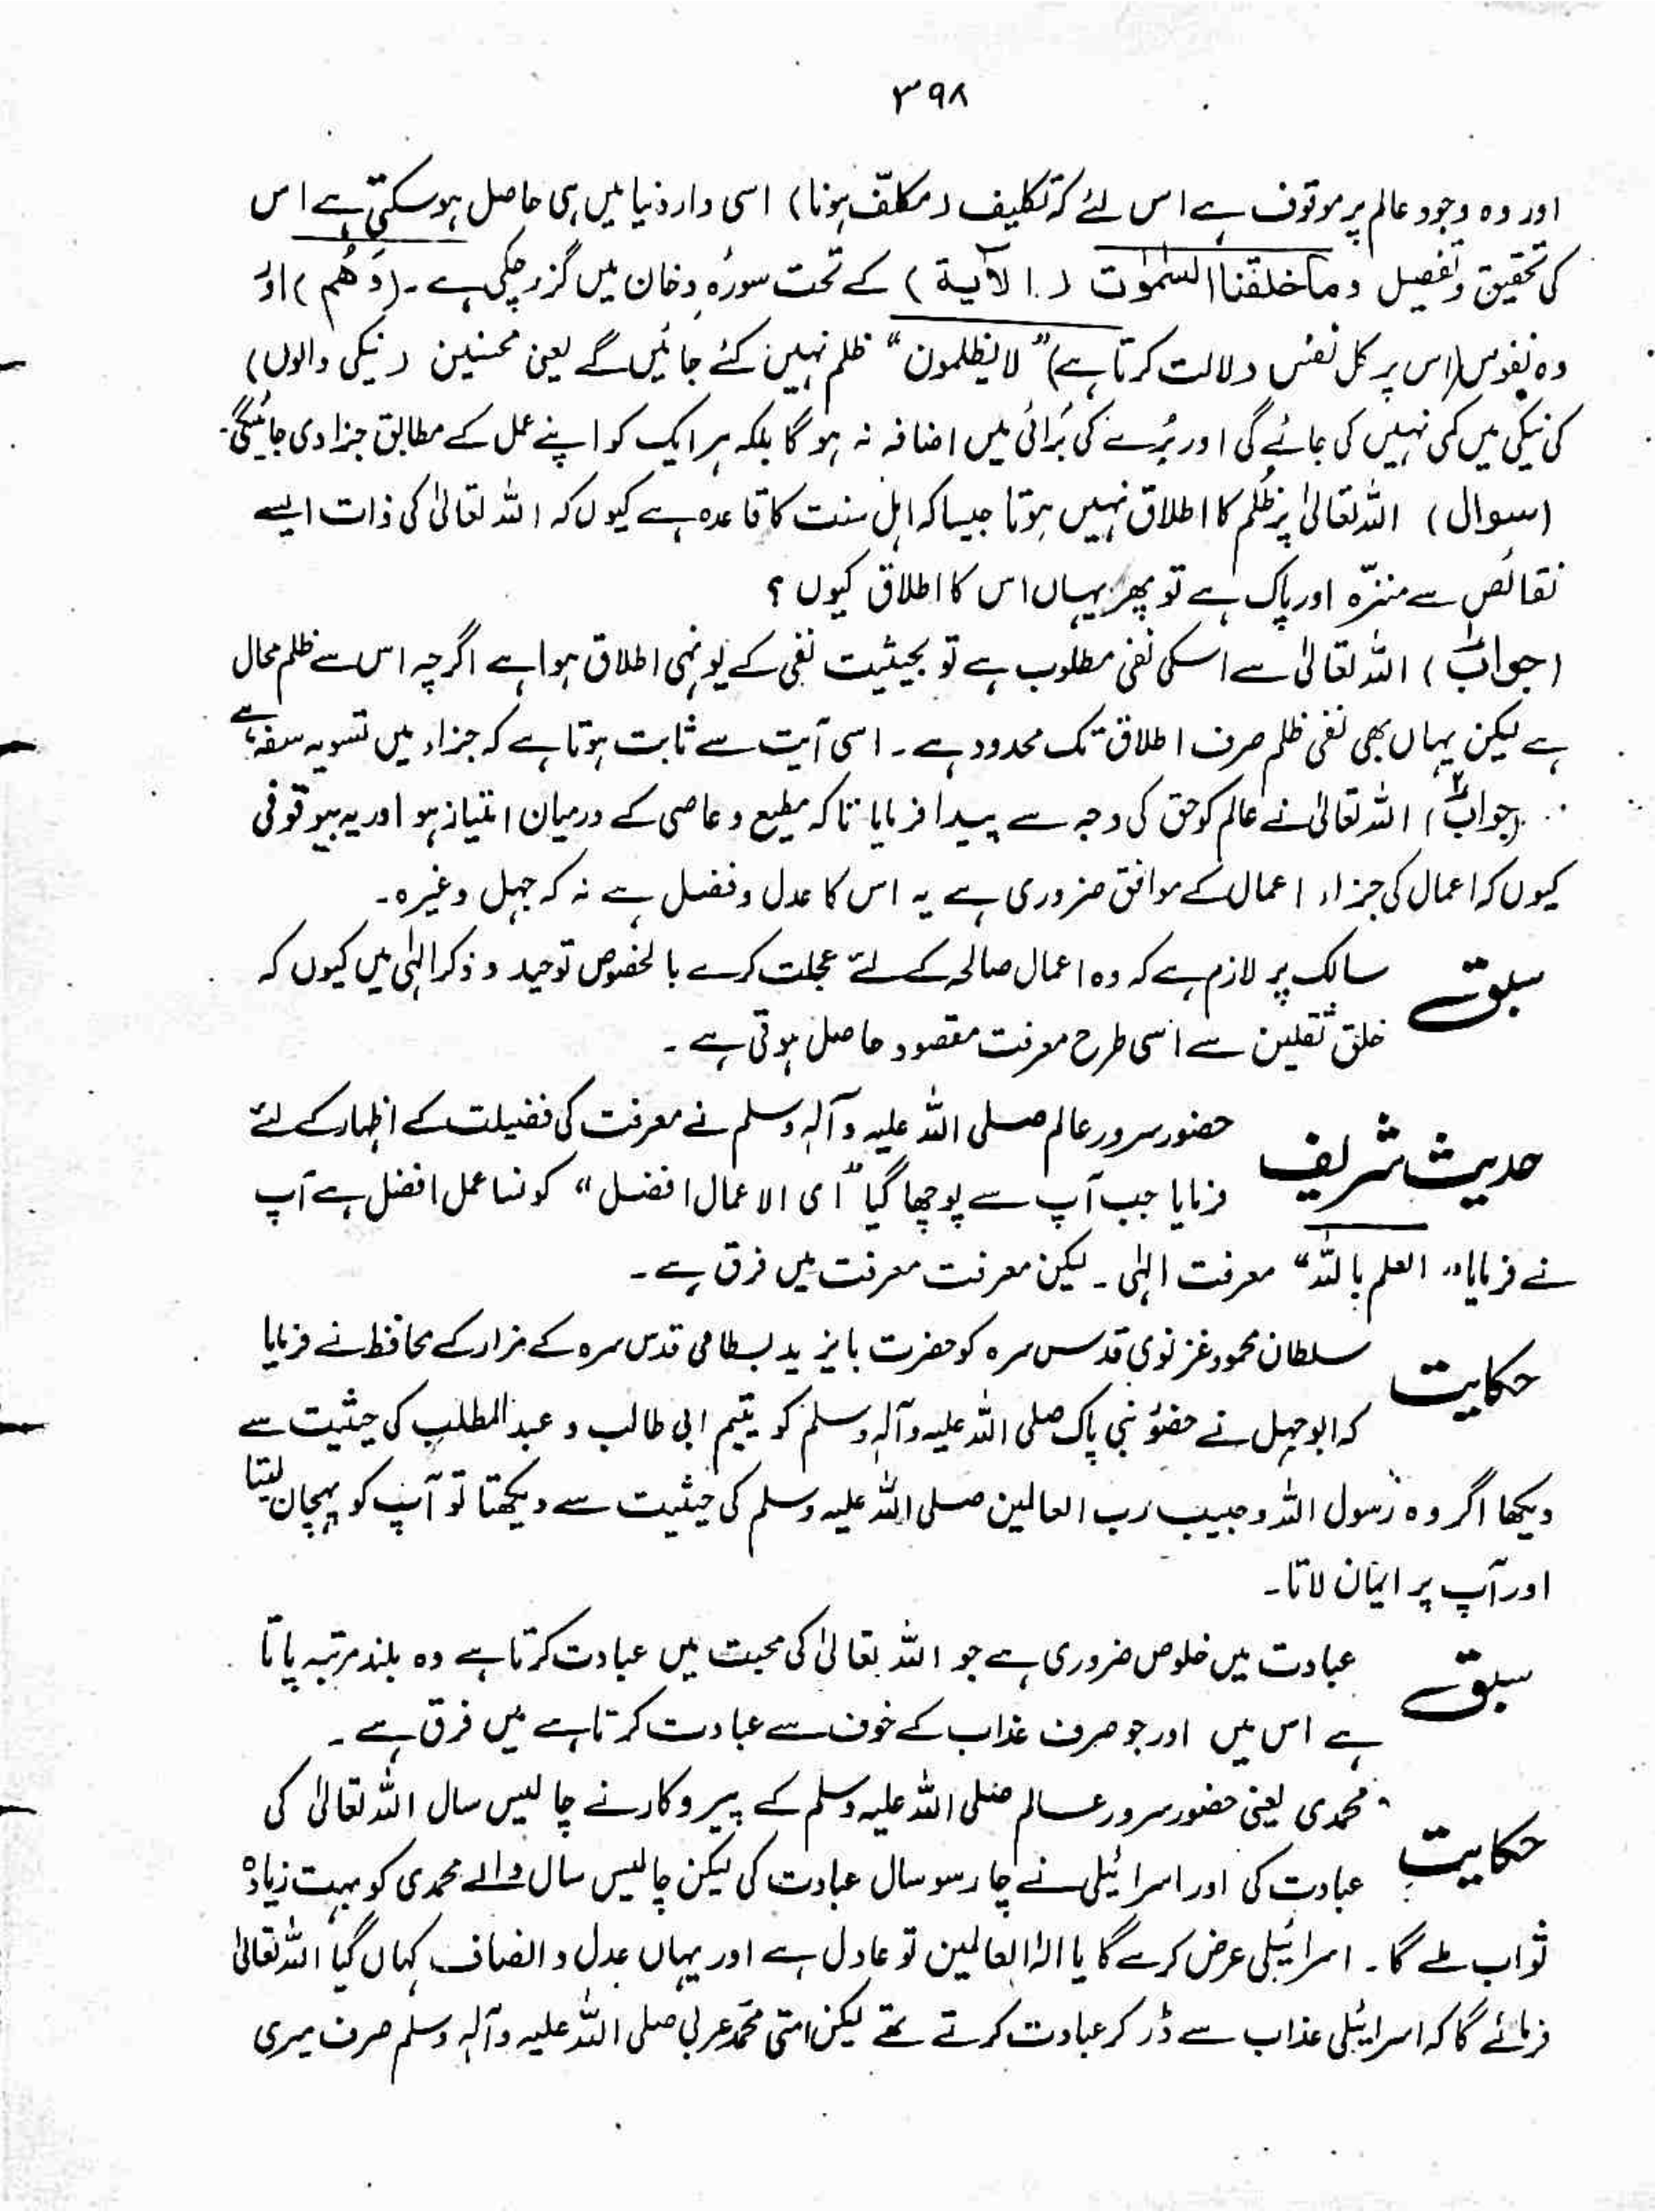 ۳۹۸
اور وہ وجود عالم پر موقوف ہے اس لئے کہ تکلیف (مکلّف ہونا) اسی دار دنیا میں ہی حاصل ہوسکتی ہے اس
کی تحقیق و تفصیل وما خلقنا السمٰوٰت (الآیة) کے تحت سورہ دخان میں گزر چکی ہے۔ (وَهُم) اور
وہ نفوس (اس پر کل نفس دلالت کرتا ہے) "لا یظلمون" ظلم نہیں کئے جائیں گے یعنی محسنین (نیکی والوں)
کی نیکی میں کمی نہیں کی جائے گی اور بُرے کی بُرائی میں اضافہ نہ ہوگا بلکہ ہر ایک کو اپنے عمل کے مطابق جزا دی جائیگی۔
(سوال) اللہ تعالیٰ پر ظلم کا اطلاق نہیں ہوتا جیسا کہ اہل سنت کا قاعدہ ہے کیوں کہ اللہ تعالیٰ کی ذات ایسے
نقائص سے منزّہ اور پاک ہے تو پھر یہاں اس کا اطلاق کیوں؟
(جواب۱) اللہ تعالیٰ سے اسکی نفی مطلوب ہے تو بحیثیت نفی کے یونہی اطلاق ہوا ہے اگرچہ اس سے ظلم محال
ہے لیکن یہاں بھی نفی ظلم صرف اطلاق تک محدود ہے۔ اسی آیت سے ثابت ہوتا ہے کہ جزاء میں تسویہ سفہ ہے
(جواب۲) اللہ تعالیٰ نے عالم کو حق کی وجہ سے پیدا فرمایا تاکہ مطیع و عاصی کے درمیان امتیاز ہو اور یہ بیوقوفی
کیوں کہ اعمال کی جزاء اعمال کے موافق ضروری ہے یہ اس کا عدل و فضل ہے نہ کہ جہل وغیرہ۔
سبق سالک پر لازم ہے کہ وہ اعمال صالحہ کے لئے عجلت کرے بالخصوص توحید و ذکر الٰہی میں کیوں کہ
خلق ثقلین سے اسی طرح معرفت مقصود حاصل ہوتی ہے۔
حدیث شریف حضور سرور عالم صلی اللہ علیہ وآلہٖ وسلم نے معرفت کی فضیلت کے اظہار کے لئے
فرمایا جب آپ سے پوچھا گیا "ای الاعمال افضل" کونسا عمل افضل ہے آپ
نے فرمایا "العلم باللہ" معرفت الٰہی۔ لیکن معرفت معرفت میں فرق ہے۔
حکایت سلطان محمود غزنوی قدس سرہ کو حضرت بایزید بسطامی قدس سرہ کے مزار کے محافظ نے فرمایا
کہ ابوجہل نے حضور نبی پاک صلی اللہ علیہ وآلہٖ وسلم کو یتیم ابی طالب و عبدالمطلب کی حیثیت سے
دیکھا اگر وہ رسول اللہ وحبیب رب العالمین صلی اللہ علیہ وسلم کی حیثیت سے دیکھتا تو آپ کو پہچان لیتا
اور آپ پر ایمان لاتا۔
سبق عبادت میں خلوص ضروری ہے جو اللہ تعالیٰ کی محبت میں عبادت کرتا ہے وہ بلند مرتبہ پاتا
ہے اس میں اور جو صرف عذاب کے خوف سے عبادت کرتا ہے میں فرق ہے۔
حکایت محمدی یعنی حضور سرور عالم صلی اللہ علیہ وسلم کے پیروکار نے چالیس سال اللہ تعالیٰ کی
عبادت کی اور اسرائیلی نے چار سو سال عبادت کی لیکن چالیس سال والے محمدی کو بہت زیادہ
ثواب ملے گا۔ اسرائیلی عرض کرے گا یا الٰہ العالمین تو عادل ہے اور یہاں عدل و انصاف کہاں گیا اللہ تعالیٰ
فرمائے گا کہ اسرائیلی عذاب سے ڈر کر عبادت کرتے تھے لیکن امتی محمد عربی صلی اللہ علیہ وآلہٖ وسلم صرف میری